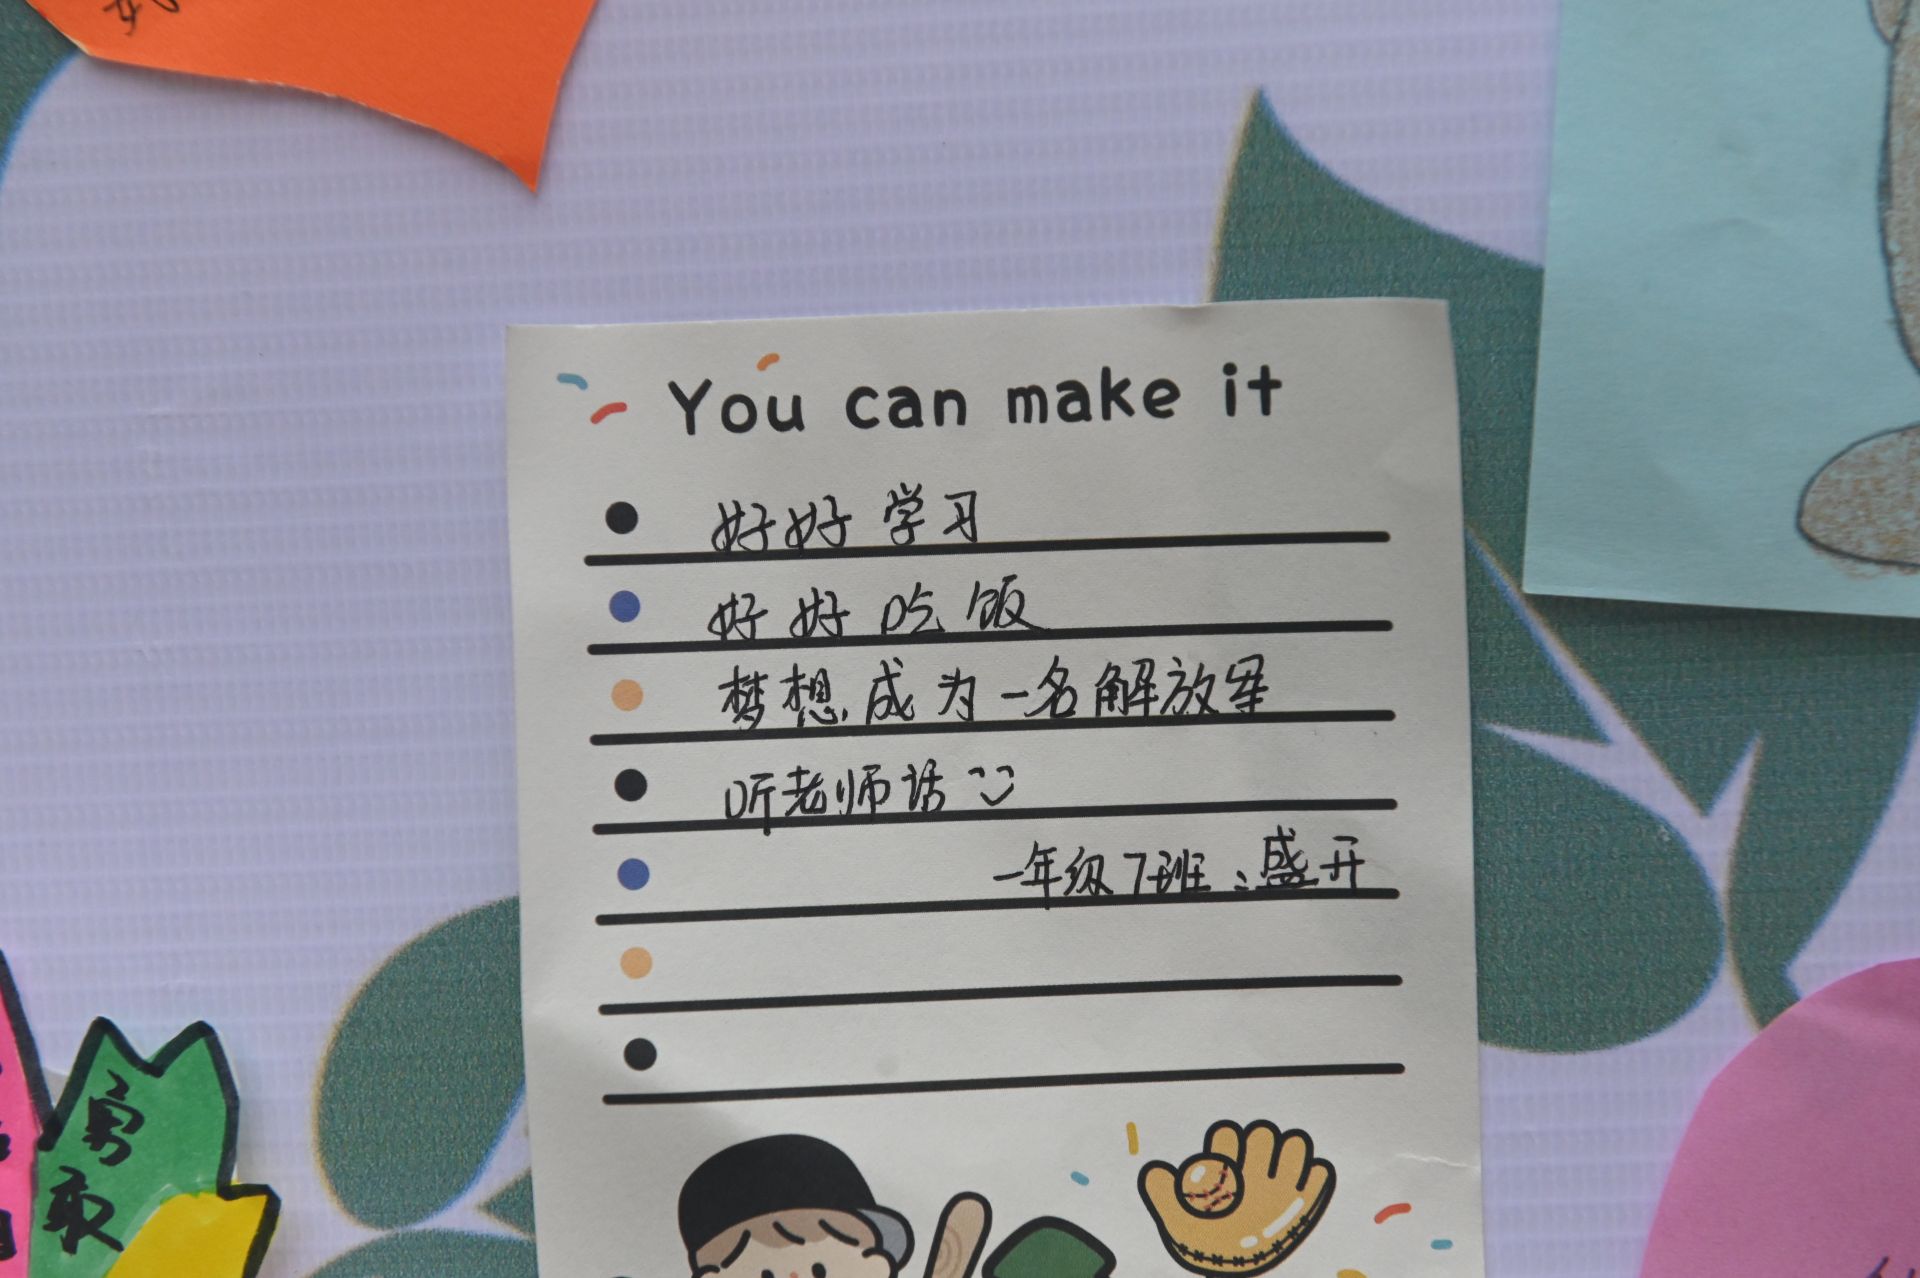 You can make it
好好学习
好好吃饭
梦想成为一名解放军
听老师话
一年级7班:盛开
勇
敢